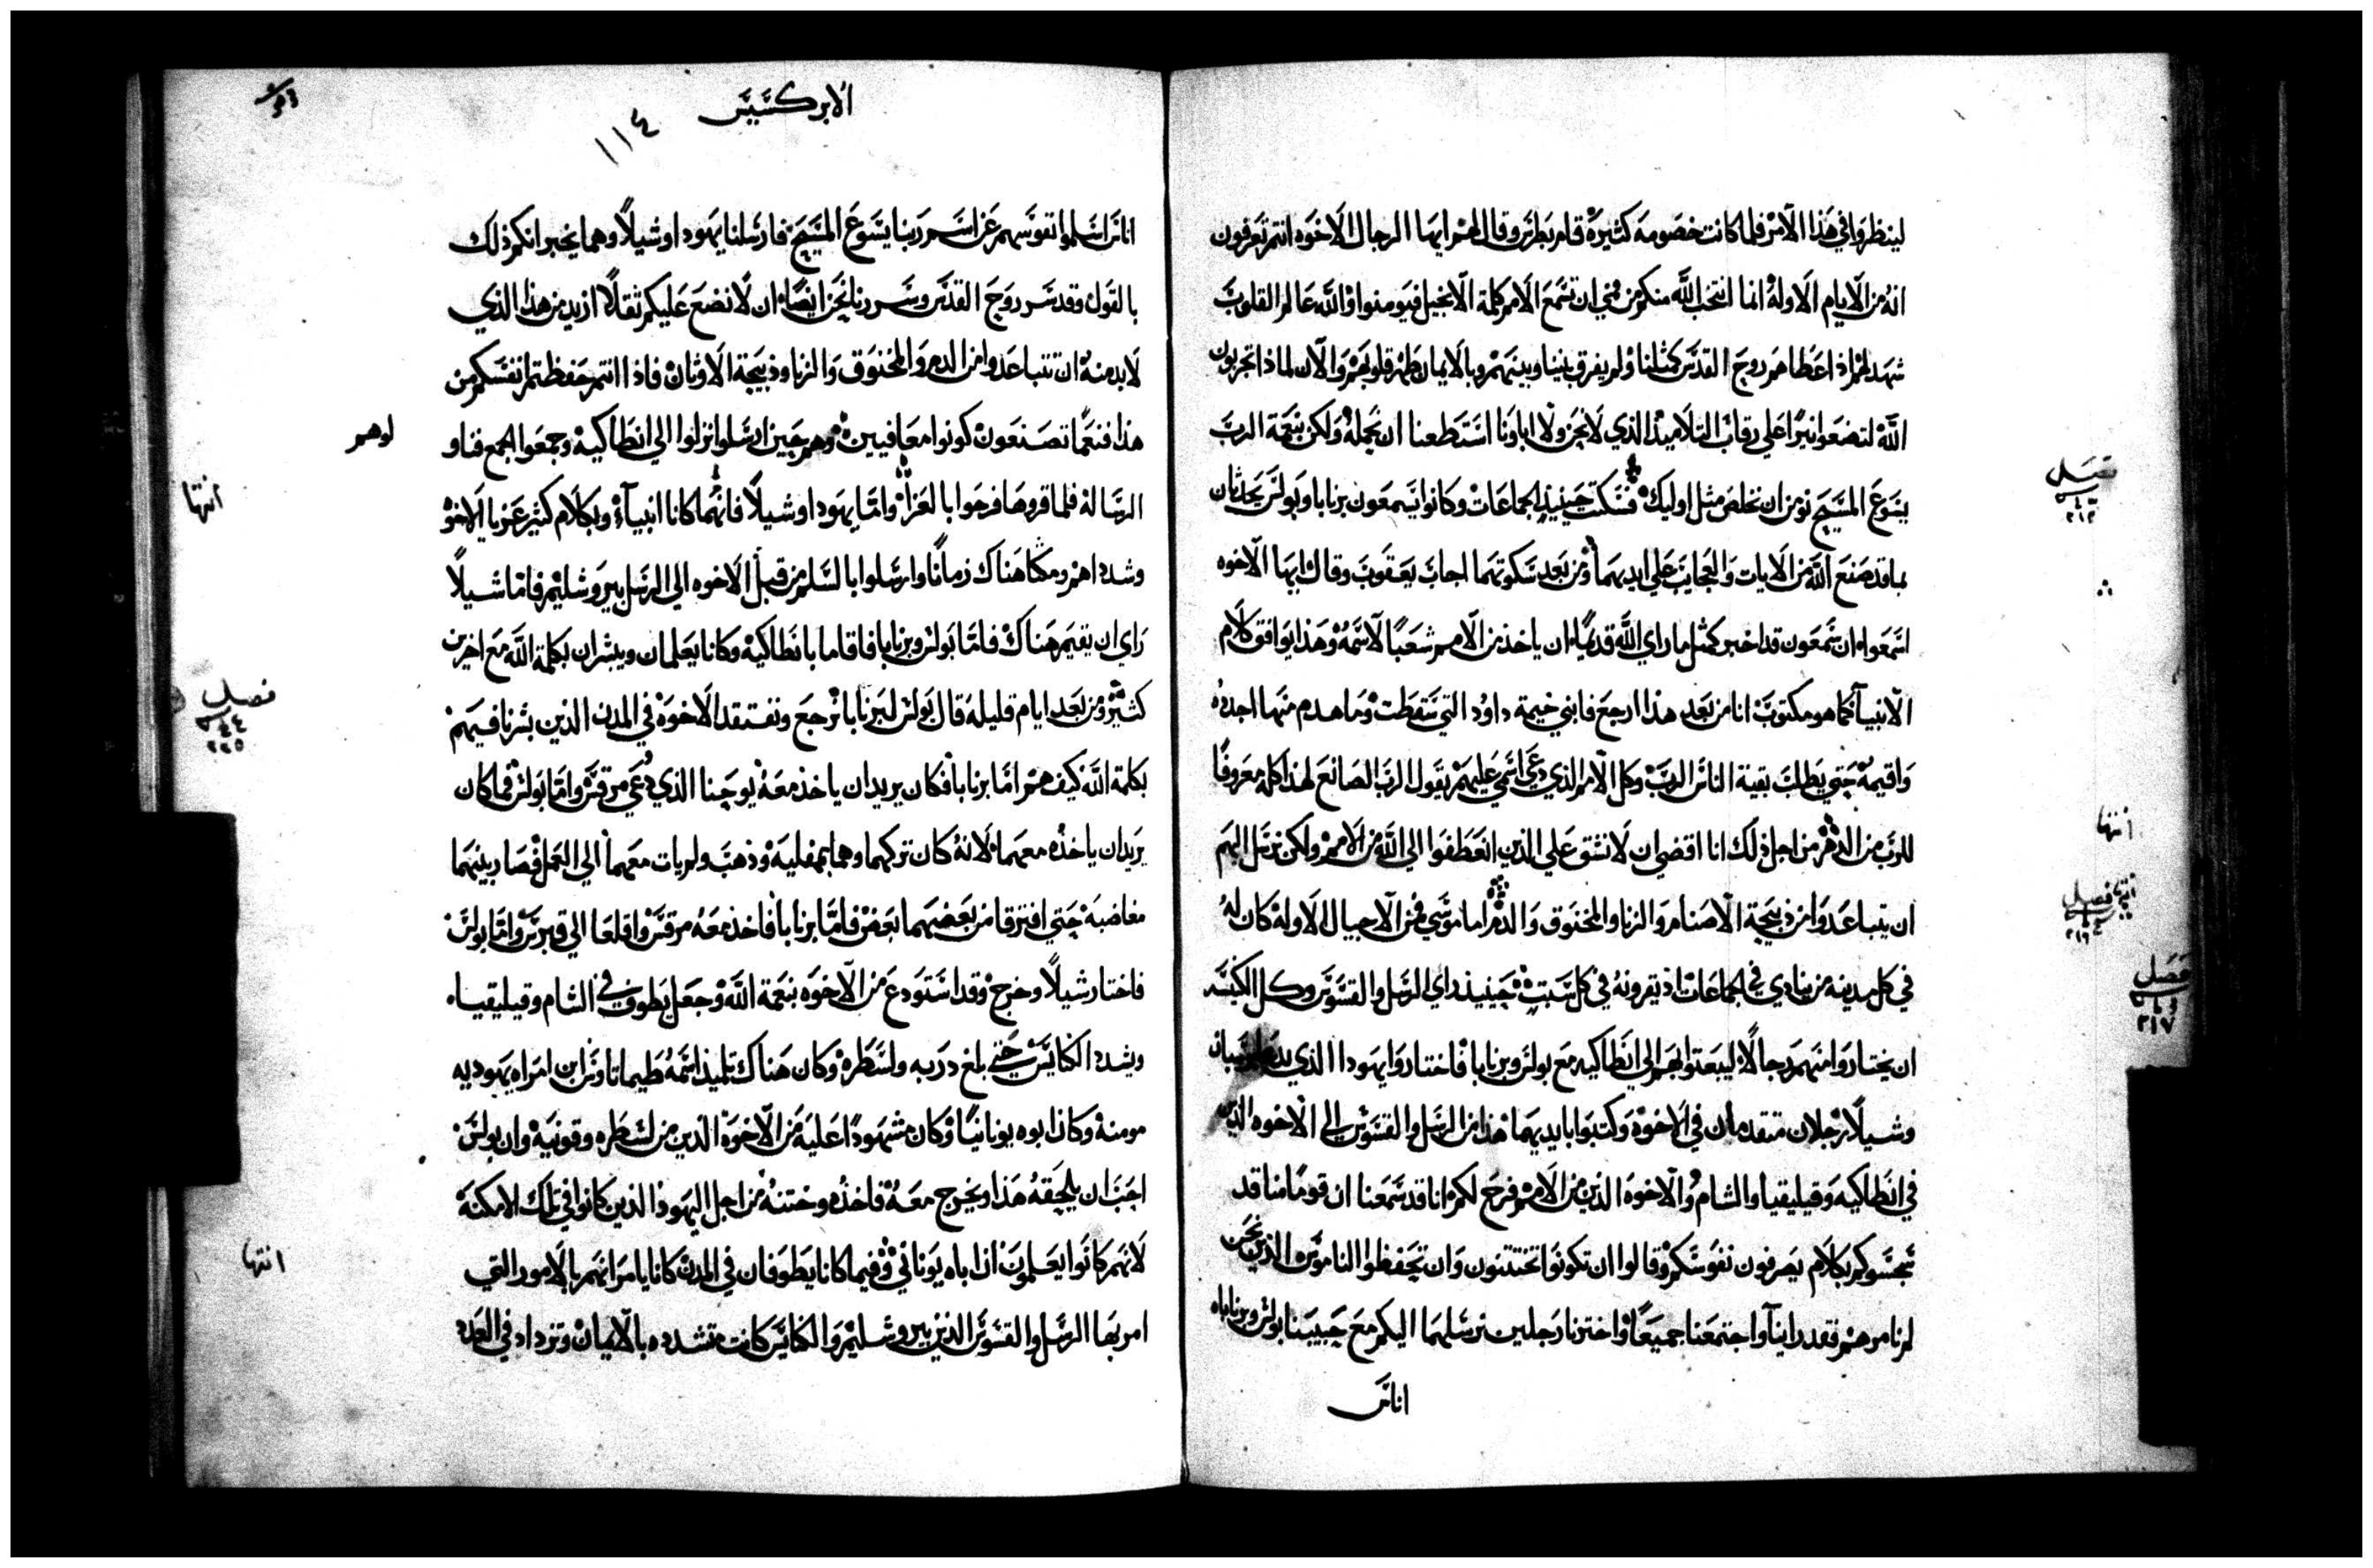 لينظروا في هذا الامر فلما كانت خصومة كثيرة قام بطرس وقال لهم ايها الرجال الاخوه انتم تعرفون
انه من الايام الاولة انما انتخب الله منكم من في ان تسمع الامم كلمة الانجيل فيومنوا والله عالم القلوب
شهد لهم اذ اعطاهم روح القدس كمثلنا ولم يفرق بيننا وبينهم وبالايمان طهر قلوبهم والان لماذا تجربون
الله لتضعوا نيرا على رقاب التلاميذ الذي لا نحن ولا اباونا استطعنا ان نحمله ولكن بنعمة الرب
يسوع المسيح نومن ان نخلص مثل اوليك فسكت حينيذ الجماعات وكانوا يسمعون برنابا وبولس يحدثان
بما قد صنع الله من الايات والعجايب على ايديهما ومن بعد سكوتهما اجاب يعقوب وقال ايها الاخوه
اسمعوا ان شمعون قد اخبر كمثل ما راي الله قديما ان ياخذ من الامم شعبا لاسمه وهذا يوافق كلام
الانبيا كما هو مكتوب انا من بعد هذا ارجع فابني خيمة داود التي سقطت وما هدم منها اجدده
واقيمه حتي يطلب بقية الناس الرب وكل الامم الذي دعي اسمي عليهم يقول الرب الصانع لهذا كله معروفا
للرب من الدهر من اجل ذلك انا اقضي ان لا نشق علي الذين انعطفوا الي الله من الامم ولكن نرسل اليهم
ان يتباعدوا من ذبيحة الاصنام والزنا والمخنوق والدم اما موسي فمن الاجيال الاولة كان له
في كل مدينه من ينادي في الجماعات اذ يقرونه في كل سبت حينيذ راي الرسل والقسوس وكل الكنيسه
ان يختاروا منهم رجالا ليبعثوا بهم الي انطاكيه مع بولس وبرنابا فاختاروا يهودا الذي يدعا
وشيلا رجلان متقدمان في الاخوة وكتبوا بايديهما هذا من الرسل والقسوس الي الاخوه الذين
في انطاكيه وقيليقيا والشام والاخوه الذين من الامم فرح لكم انا قد سمعنا ان قوما منا قد
سجسوكم بكلام يصرفون نفوسكم وقالوا ان تكونوا تختتنون وان تحفظوا الناموس الذين نحن
لم نامرهم فقد راينا واجتمعنا جميعا واخترنا رجلين نرسلهما اليكم مع حبيبينا بولس وبرنابا
اناس
فصل
٢١٣
انتها
فصل
٢١٦
فصل
٢١٧
الابركسيس
١١٤
اناس اسلموا نفوسهم عن اسم ربنا يسوع المسيح فارسلنا يهودا وشيلا وهما يخبرانكم ذلك
بالقول وقد سر روح القدس وسررنا نحن ايضا ان لا نضع عليكم ثقلا ازيد من هذا الذي
لا بد منه ان تتباعدوا من الدم والمخنوق والزنا وذبيحة الاوثان فاذا انتم حفظتم انفسكم من
هذا فنعما تصنعون كونوا معافيين وهم حين ارسلوا نزلوا الي انطاكية وجمعوا الجمع فناو
لوهم
الرسالة فلما قروها فرحوا بالعزا واما يهودا وشيلا فانهما كانا انبيآ وبكلام كثير عزيا الاخوة
وشدداهم ومكثا هناك زمانا وارسلوا بالسلم من قبل الاخوه الي الرسل بيروشليم فاما شيلا
راي ان يقيم هناك فاما بولس وبرنابا فاقاما بانطاكية وكانا يعلمان ويبشران بكلمة الله مع اخرين
كثير ومن بعد ايام قليلة قال بولس لبرنابا نرجع ونفتقد الاخوة في المدن الذين بشرنا فيهم
بكلمة الله كيف هم اما برنابا فكان يريد ان ياخذ معه يوحنا الذي دعي مرقس واما بولس فما كان
يريد ان ياخذه معهما لانه كان تركهما وهما بمفلية وذهب ولم يات معهما الي العمل فصار بينهما
مغاضبة حتي افترقا من بعضهما بعض فاما برنابا فاخذ معه مرقس واقلعا الي قبرس واما بولس
فاختار شيلا وخرج وقد استودع من الاخوه بنعمة الله وجعل يطوف في الشام وقيليقياه
ويشدد الكنايس حتي بلغ دربه ولسطره وكان هناك تلميذ اسمه طيماتاوس ابن امراه يهوديه
مومنة وكان ابوه يونانيا وكان مشهودا عليه من الاخوة الذين من لسطره وقونية وان بولس
احب ان يلحقه هذا ويخرج معه فاخذه وختنه من اجل اليهود الذين كانوا في تلك الامكنة
لانهم كانوا يعلمون ان اباه يوناني وفيما كانا يطوفان في المدن كانا يامرانهم بالامور التي
امر بها الرسل والقسوس الذين بيروشليم والكنايس كانت متشدده بالايمان وتزداد في العدد
انتها
فصل
٤٤
٢٢٥
انتها